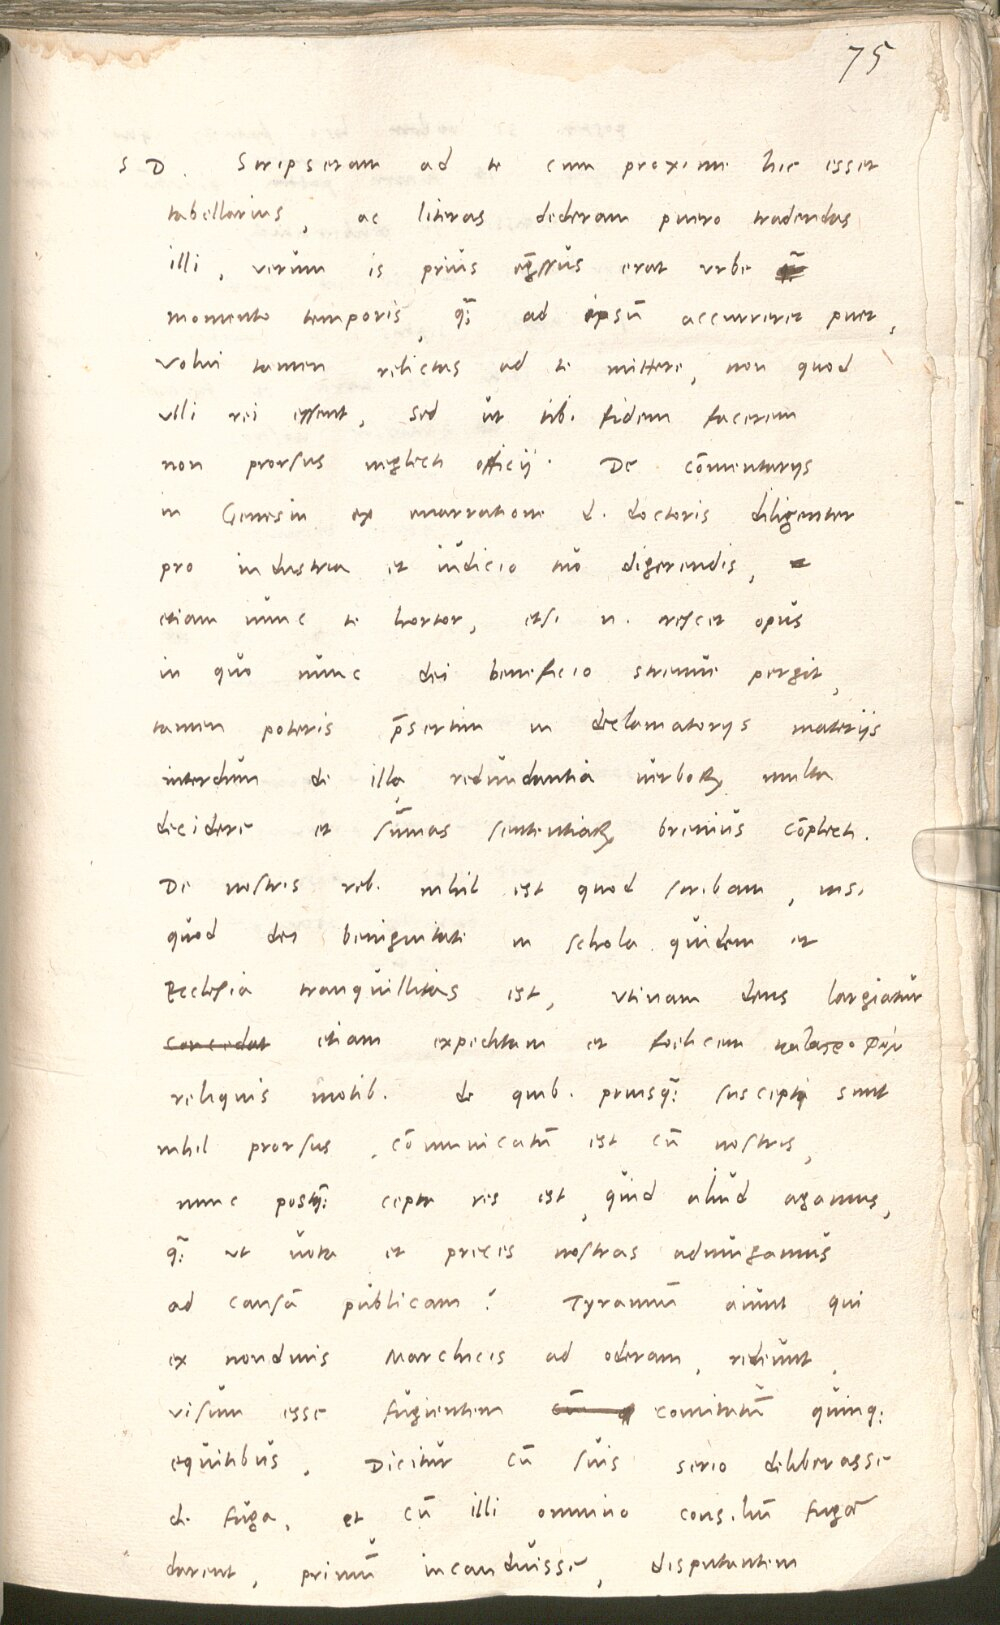 75
S D. Scripseram ad te cum proxime hic esset
tabellarius, ac literas dederam puero tradendas
illi, verum is prius eg̃ssus erat vrbe
momento temporis, q̃; ad ipsũ accurreret puer,
volui tamen relictas ad te mittere, non quod
vlli rei essent, sed ut tibi fidem facerem
non prorsus neglecti officij. De cõmentarijs
in Genesin ex enarratione d. doctoris diligenter
pro industria et iudicio tuo digerendis,
etiam nunc te hortor, etsi n. crescet opus
in quo nunc dei beneficio strenue pergit,
tamen poteris p̃sertim in declamatorijs materijs
interdum de illa redundantia verboꝝ multa
decidere et sũmas sententiaꝝ breuius cõplecti.
De nostris reb. nihil est quod scribam, nisi
quod dei benignitate in schola quidem et
Ecclesia tranquillitas est, vtinam deus largiatur
concedat etiam expeditam et foelicem καταστροφὴν
reliquis motib. de quib. priusq̃; suscepti sunt
nihil prorsus cõmunicatũ est cũ nostris,
nunc postq̃; cepta res est, quid aliud agamus,
q̃; ut uota et preces nostras adiungamus
ad causã publicam? Tyrannũ aiunt qui
ex nondinis Marchicis ad oderam, redeunt,
visum esse fugientem cũ comitatũ quinq;
equitibus. Dicitur cũ suis serio deliberasse
de fuga, et cũ illi omnino consiliũ fugã
darent, primũ incanduisse, disputantem